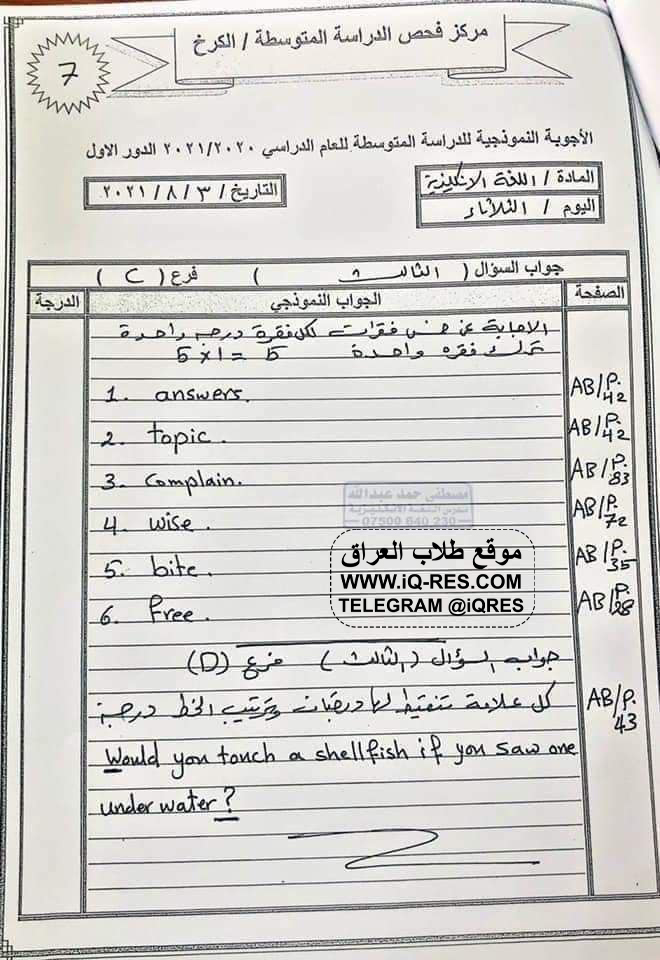 مركز فحص الدراسة المتوسطة / الكرخ
7
الأجوبة النموذجية للدراسة المتوسطة للعام الدراسي ٢٠٢١/٢٠٢٠ الدور الاول
المادة / اللغة الانكليزية
التاريخ / ٣ / ٨ / ٢٠٢١
اليوم / الثلاثاء
جواب السؤال ( الثالث ) فرع ( C )
الصفحة الجواب النموذجي الدرجة
الاجابة عن خمس فقرات لكل فقرة درجة واحدة
ترك فقرة واحدة 5 x 1 = 5
1. answers. AB/P. 42
2. topic. AB/P. 42
3. complain. AB/P. 83
مصطفى حمد عبدالله
مدرس اللغة الانكليزية
07500 640 230
4. wise. AB/P. 72
موقع طلاب العراق
5. bite. AB/P. 35
WWW.iQ-RES.COM
6. free. AB/P. 28
TELEGRAM @iQRES
جواب السؤال (الثالث) فرع (D)
كل علامة تنقيط لها درجتان وترتيب الخط درجة AB/P. 43
Would you touch a shellfish if you saw one
under water?